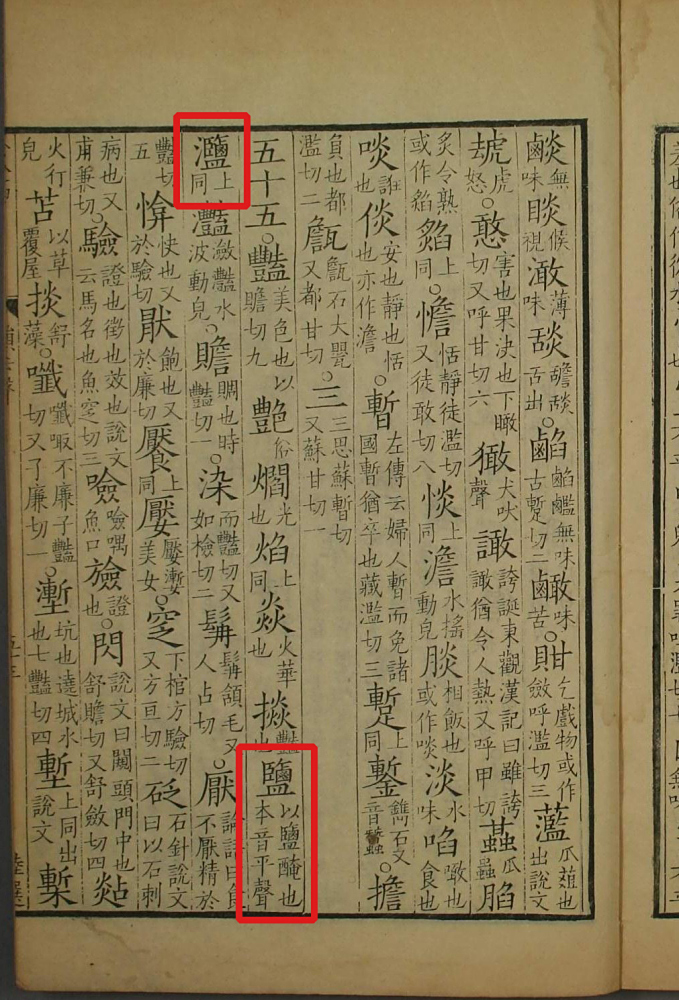 無味睒候視澉薄味舕舌出○無味古蹔切二味苦○乞戲物或作歛呼濫切三瓜葅也出說文
虎怒○憨害也果決也下瞰切又呼甘切六犬吠聲譀誇誕東觀漢記曰雖誇譀猶令人熱又呼甲切瓜蟲
炙令熟或作上同○憺恬靜徒濫切又徒敢切八惔上同澹水搖動皃腅相飯也或作啖淡水味啗噉也食也
啖誑也倓安也靜也恬也亦作澹○暫左傳云婦人暫而免諸國暫猶卒也藏濫切三蹔上同鏨鐫石又音蠶○擔
負也都濫切二甔甔石大甖又都甘切○三三思蘇暫切又蘇甘切一
五十五○豔美色也以贍切九艷俗爓光也焰上同焱火華也掞豔也鹽以鹽醃也本音平聲
上同灩瀲灩水波動皃○贍賙也時豔切一○染而豔切又如檢切二髯髯頷毛又人占切○厭論語曰食不厭精於
豔切五快也又於驗切猒飽也又於廉切饜上同美女○窆下棺方驗切又方亘切二砭石針說文曰以石刺
病也又甫兼切○驗證也徵也效也說文云馬名也魚窆切三噞噞喁魚口證也○閃說文曰闚頭門中也舒贍切又舒斂切四
火行皃苫以草覆屋掞舒藻○不廉子豔切又子廉切一○壍坑也遶城水也七豔切四塹上同出說文槧